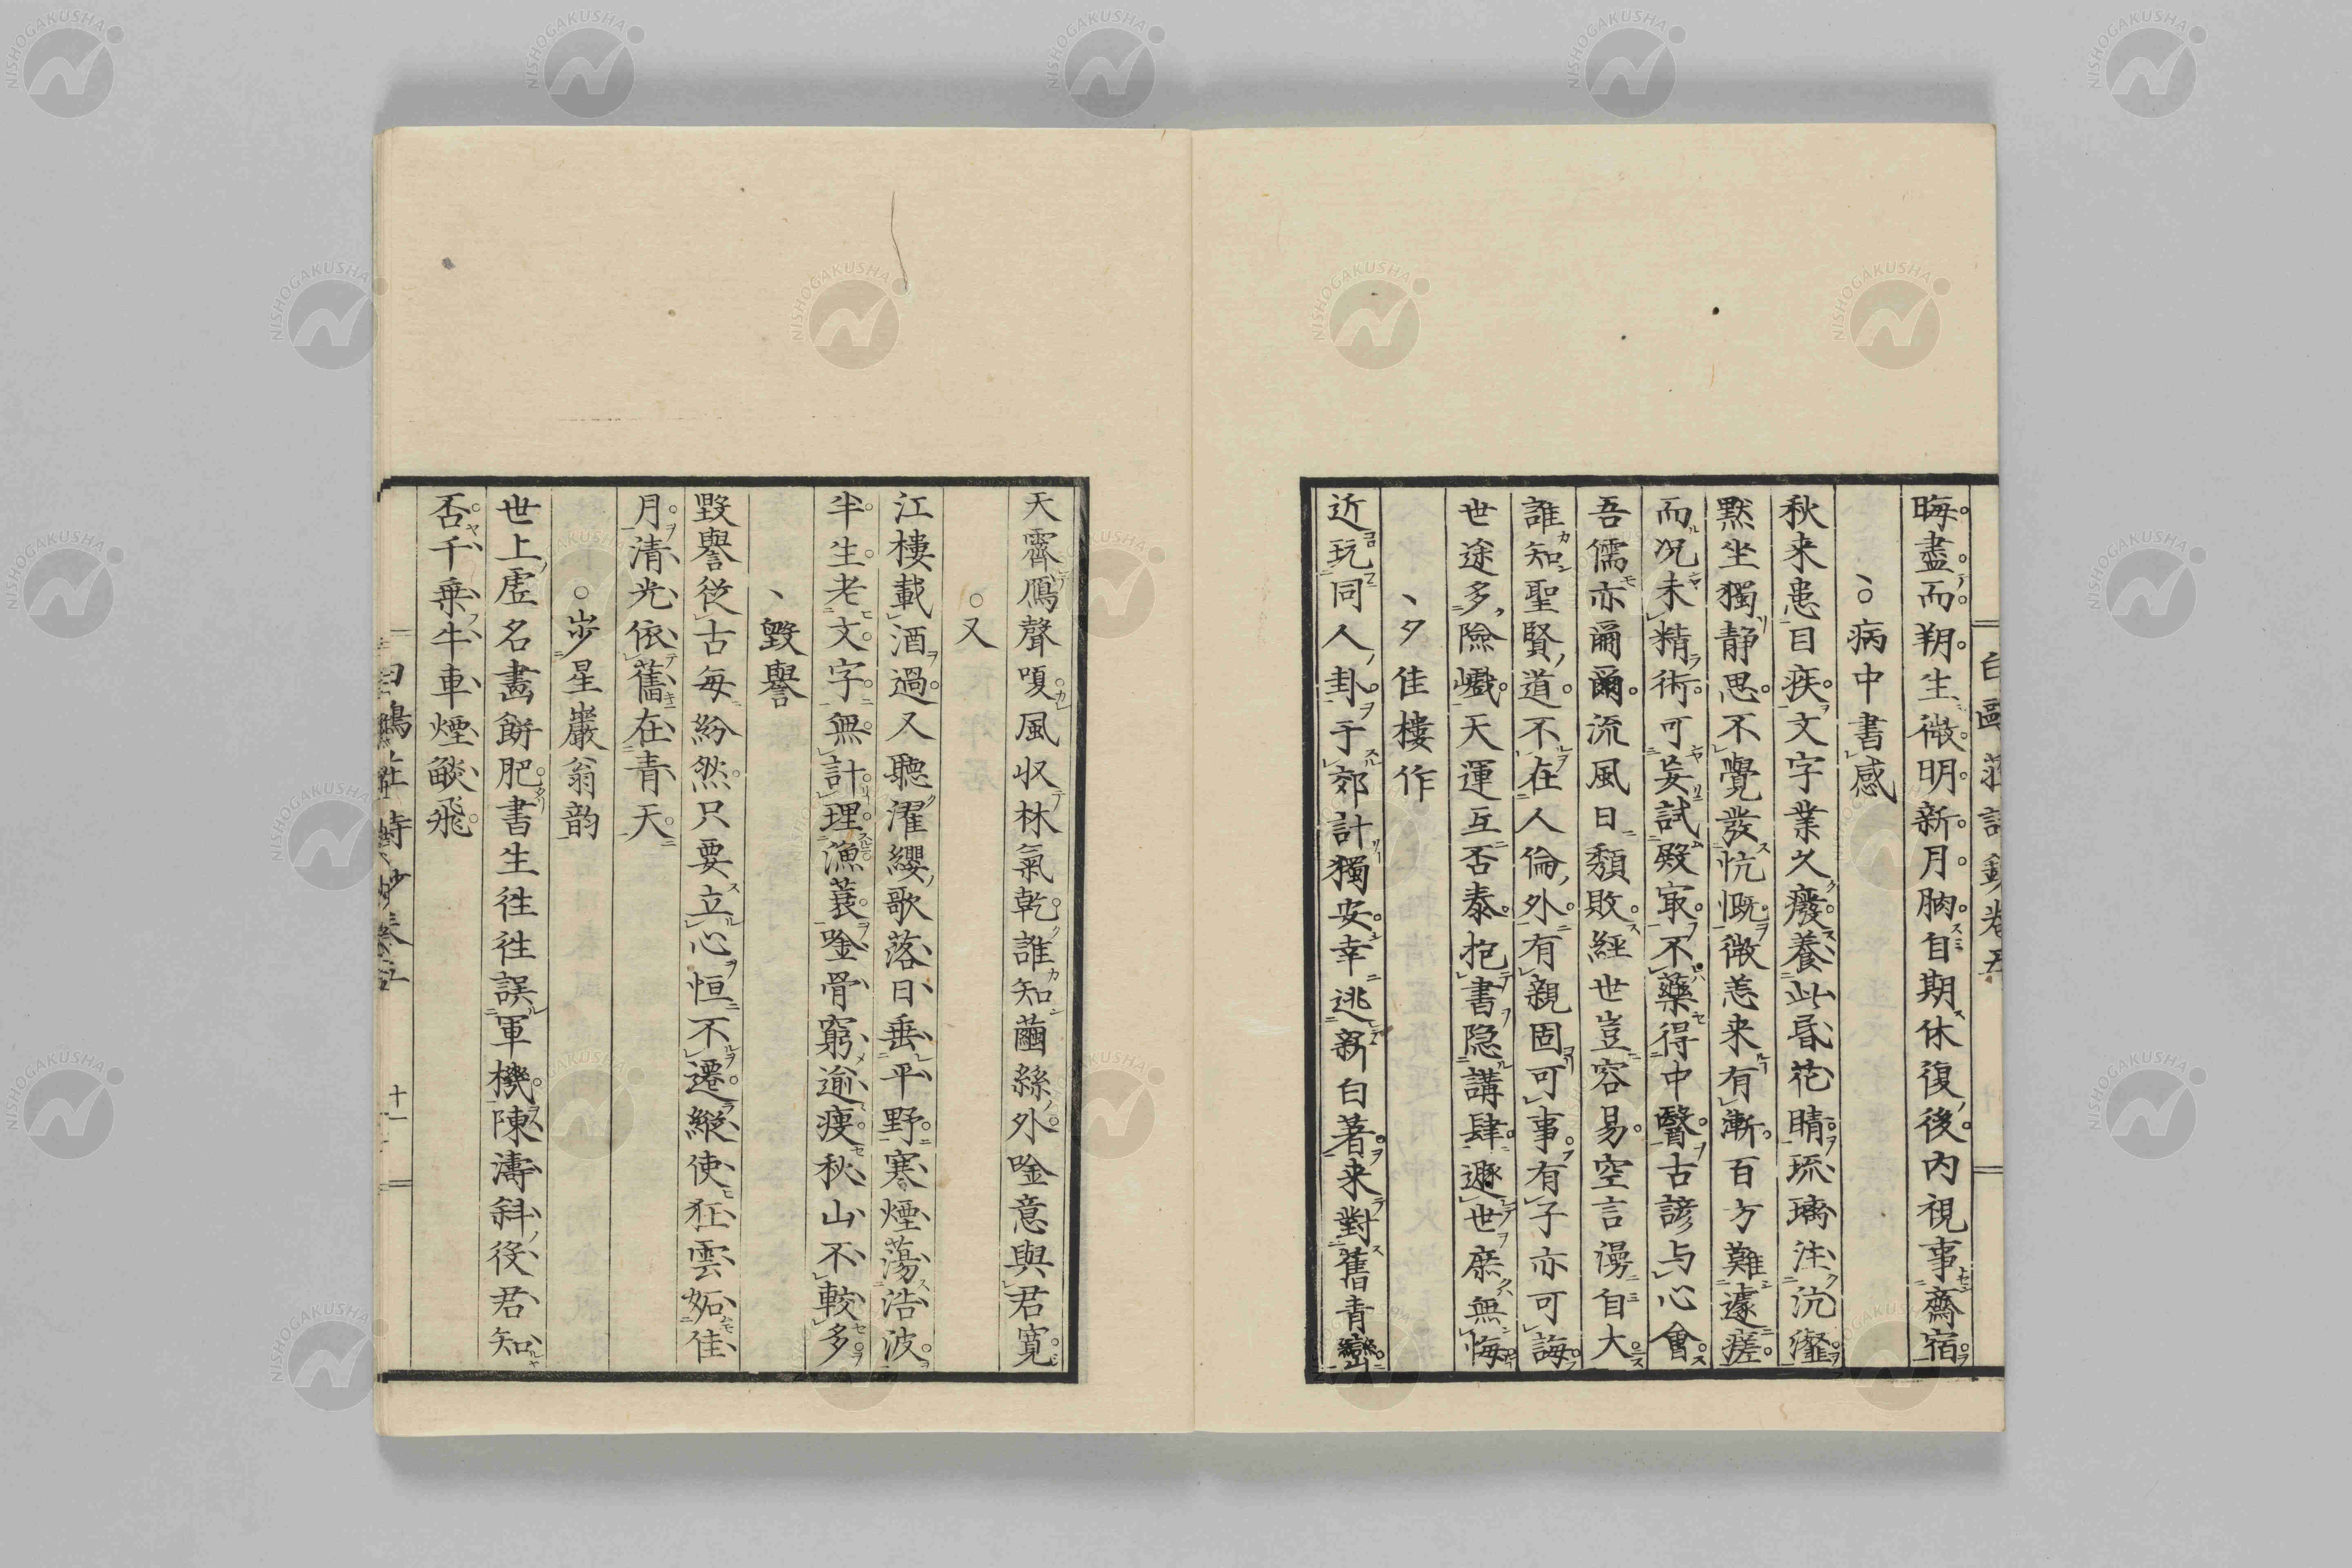 晦盡而朔生微明新月朒自期休復後内視事齋宿
病中書感
秋来患目疾文字業久癈養此昬花睛琉璃注沆瀣
黙坐獨静思不覺發忼慨微恙来有漸百方難遽瘥
而况未精術可妄試殿㝡不藥得中醫古諺与心會
吾儒亦爾爾流風日頽敗經世豈容易空言謾自大
誰知聖賢道不在人倫外有親固可事有子亦可誨
世途多險巇天運互否泰抱書隐講肆遯世庶無悔
夕佳樓作
近玩同人卦于郊計獨安幸逃新白著来對舊青巒
天霽鴈聲嗄風収林氣乾誰知繭絲外唫意與君寛
又
江樓載酒過又聽濯纓歌落日垂平野寒煙蕩浩波
半生老文字無計理漁蓑唫骨窮逾痩秋山不較多
毀譽
毀譽従古毎紛然只要立心恒不遷縱使狂雲妬佳
月清光依舊在青天
歩星巖翁韵
世上虚名畵餅肥書生徃徃誤軍機陳濤斜役君知
否千乗牛車煙燄飛
十一
NISHOGAKUSHA